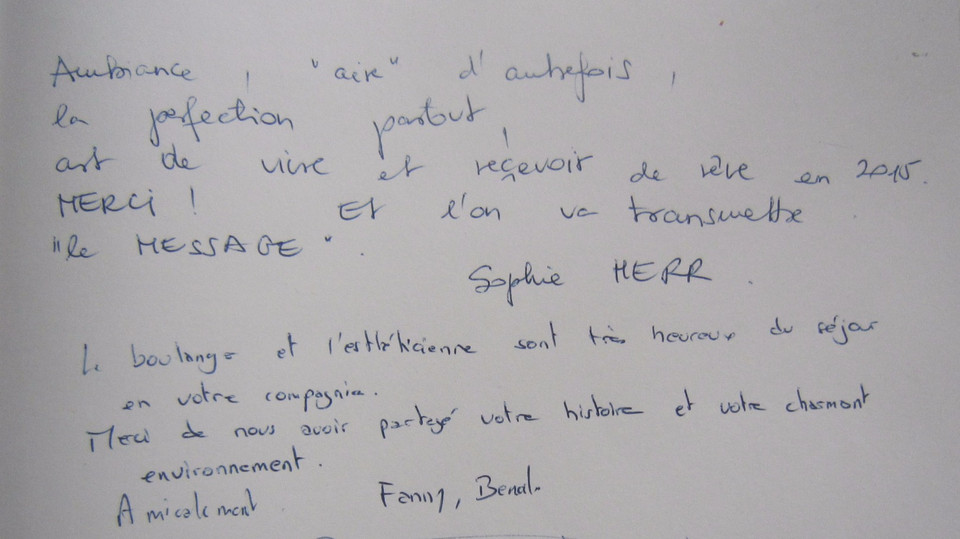 Ambiance, "air" d'autrefois,
la perfection partout,
art de vivre et reçevoir de rêve en 2015.
MERCI ! Et l'on va transmettre
"le MESSAGE".
Sophie HERR.
Le boulanger et l'esthéticienne sont très heureux du séjour
en votre compagnie.
Merci de nous avoir partagé votre histoire et votre charmant
environnement.
Amicalement Fanny,